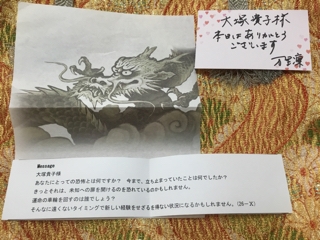 大塚貴子様
本日はありがとう
ございます
Message
大塚貴子様
あなたにとっての恐怖とは何ですか？　今まで、立ち止まっていたことは何でしたか？
きっとそれは、未知への扉を開けるのを恐れているのかもしれません。
運命の車輪を回すのは誰でしょう？
そんなに遠くないタイミングで新しい経験をせざるを得ない状況になるかもしれません。(26－X)